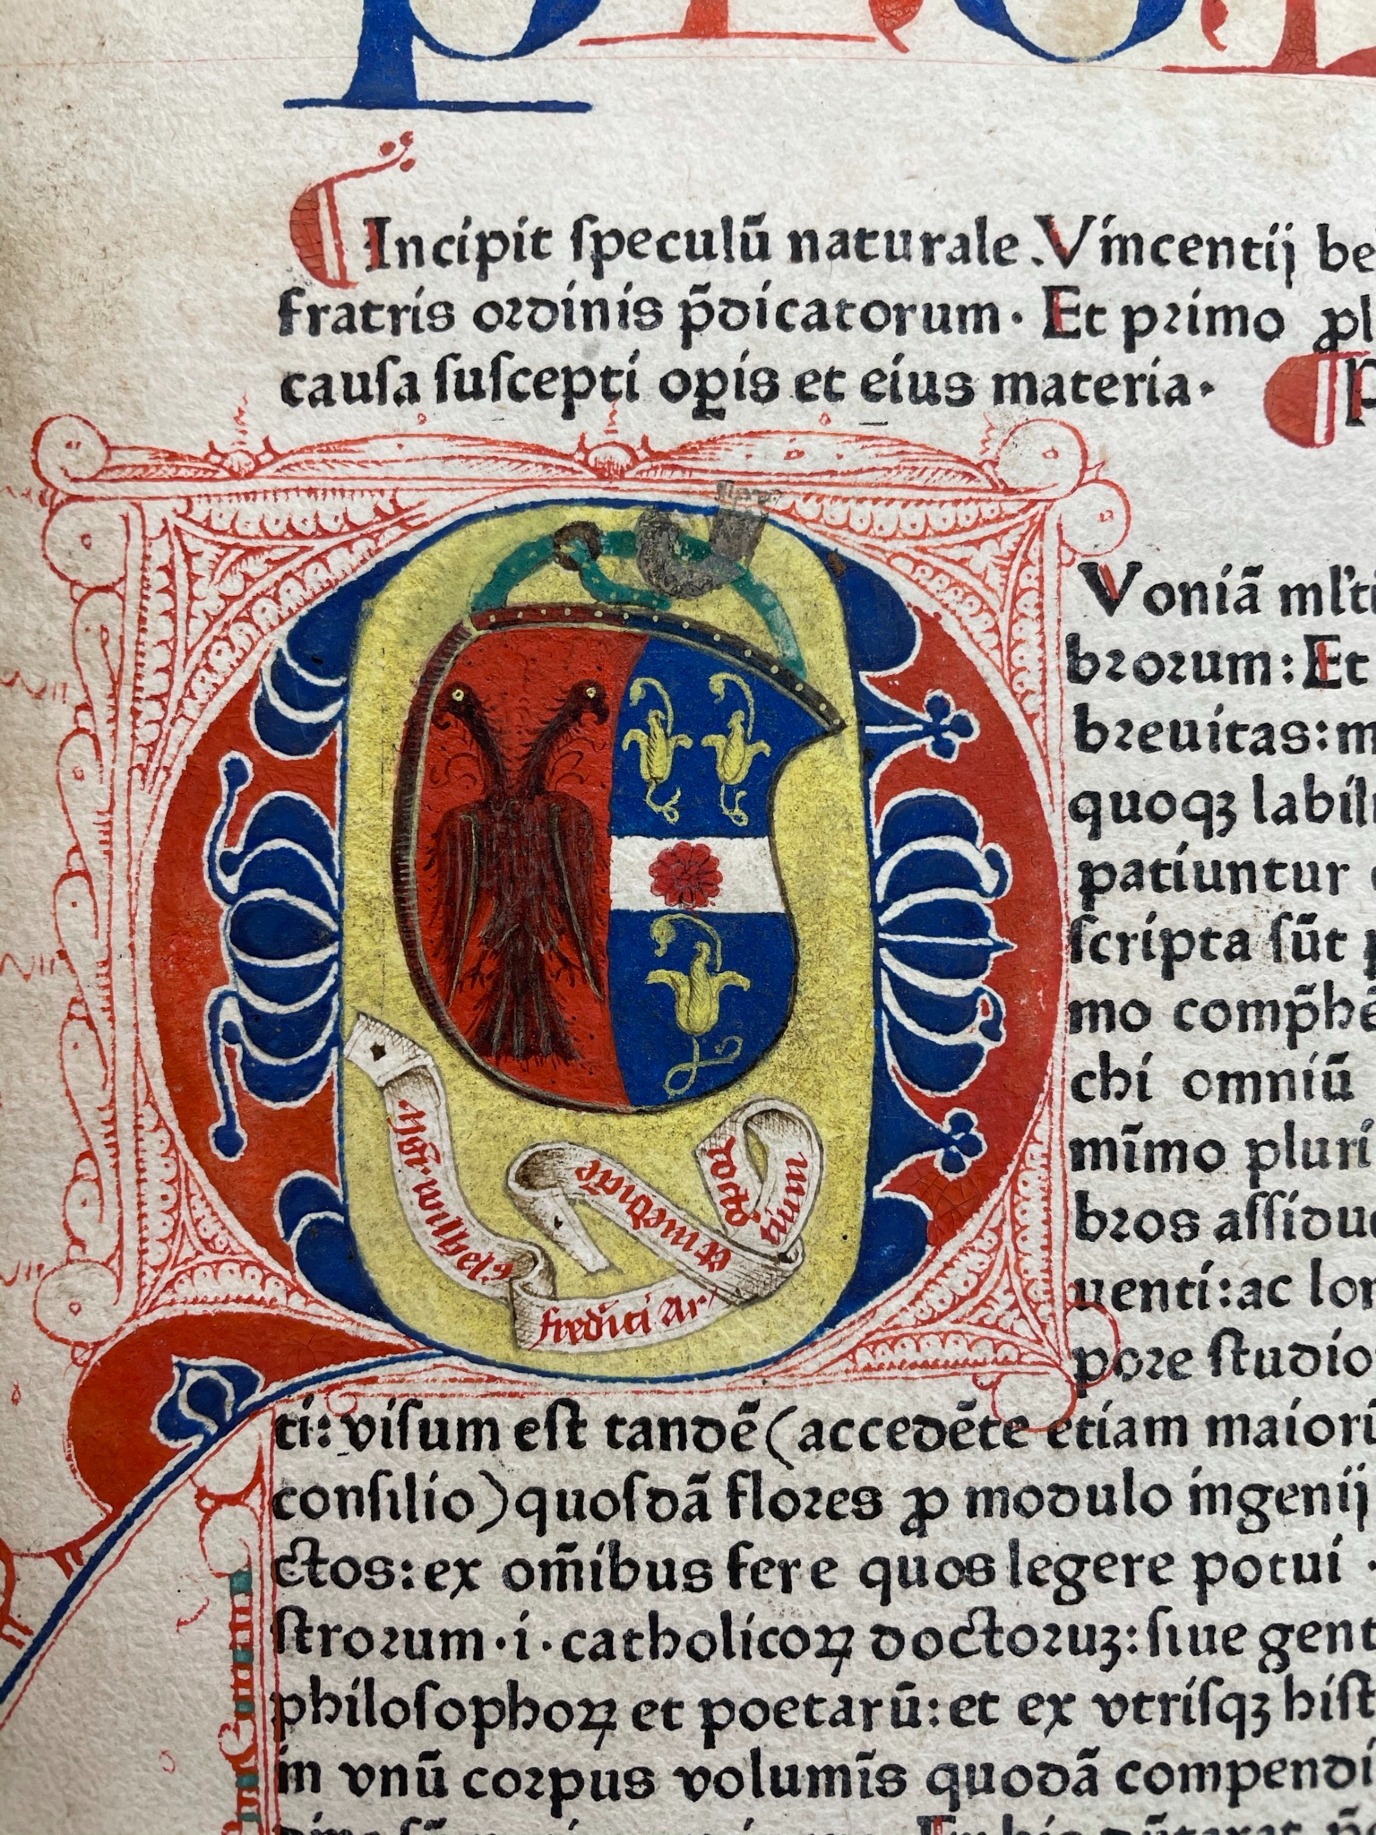 Incipit ſpeculū naturale .Vincentij be
fratris ordinis p̄dicatorum· Et primo ꝓl
cauſa ſuſcepti oꝑis et eius materia·
Q
Voniā ml'ti
brorum: Et
breuitas: m
quoqꝫ labil
patiuntur
ſcripta ſūt
mo comp̄hē
chi omniū
mīmo pluri
bros aſſidue
uenti: ac lon
pore ſtudio
ti: viſum eſt tandē (accedēte etiam maiorū
conſilio) quoſdā flores ꝓ modulo ingenij
ctos: ex om̄ibus fere quos legere potui ·
ſtrorum·i·catholicoꝝ doctoruꝫ: ſiue gent
philoſophoꝝ et poetarū: et ex vtriſqꝫ hiſt
in vnū corpus volumīs quodā compendi
wilhelm
fredīci Ar
et medicīe
doctor